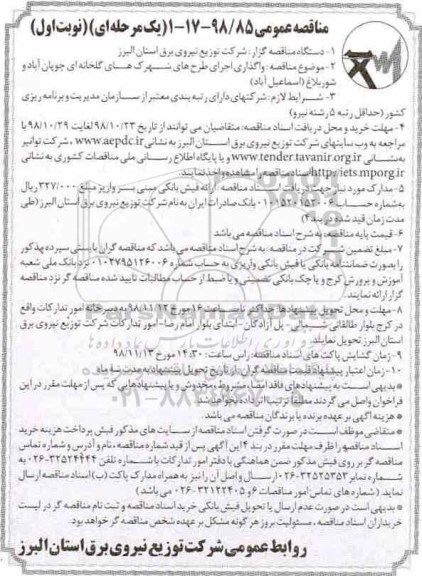 مناقصه عمومی ۹۸/۸۵-۱۷-۱ (یک مرحله ای) (نوبت اول)
۱- دستگاه مناقصه گزار: شرکت توزیع نیروی برق استان البرز
۲- موضوع مناقصه: واگذاری اجرای طرح های شهرک های گلخانه ای چوپان آباد و
شوربلاغ (اسماعیل آباد)
۳- شرایط لازم: شرکتهای دارای رتبه بندی معتبر از سازمان مدیریت و برنامه ریزی
کشور (حداقل رتبه ۵ رشته نیرو)
۴- مهلت خرید و محل دریافت اسناد مناقصه: متقاضیان می توانند از تاریخ ۹۸/۱۰/۲۳ لغایت ۹۸/۱۰/۲۹ با
مراجعه به وب سایتهای شرکت توزیع نیروی برق استان البرز به نشانی www.aepdc.ir، شرکت توانیر
به نشانی www.tender.tavanir.org.ir و یا پایگاه اطلاع رسانی ملی مناقصات کشوری به نشانی
http://iets.mporg.ir اسناد مناقصه را مشاهده و اخذ نمایند.
۵- مدارک مورد نیاز جهت دریافت اسناد مناقصه: ارائه فیش بانکی مبنی بر واریز مبلغ ۳۲۷/۰۰۰ ریال
به شماره حساب ۰۱۰۱۵۲۰۱۵۲۰۰۶ بانک صادرات ایران به نام شرکت توزیع نیروی برق استان البرز (طی
مدت زمان قید شده در بند ۴)
۶- قیمت پایه مناقصه: به شرح اسناد مناقصه می باشد
۷- مبلغ تضمین شرکت در مناقصه: به شرح اسناد مناقصه می باشد که مناقصه گران بایستی سپرده مذکور
را بصورت ضمانتنامه بانکی یا فیش بانکی واریزی به حساب شماره ۰۱۰۲۷۹۵۱۲۶۰۰۶ نزد بانک ملی شعبه
آموزش و پرورش کرج و یا چک بانکی تضمینی و یا ضبط از حساب مطالبات تایید شده مناقصه گر نزد مناقصه
گزار ارائه نمایند.
۸- مهلت و محل تحویل پیشنهادها: تا ساعت ۱۶ مورخ ۹۸/۱۱/۱۲ به دبیرخانه امور تدارکات واقع
در کرج بلوار طالقانی شمالی- پل آزادگان- ابتدای بلوار امام رضا- امور تدارکات شرکت توزیع نیروی برق
استان البرز تحویل نمایند.
۹- زمان گشایش پاکت های اسناد مناقصه: راس ساعت: ۱۴:۳۰ مورخ ۹۸/۱۱/۱۳
۱۰- زمان اعتبار پیشنهاد قیمت مناقصه گران: از تاریخ تحویل پیشنهاد به مدت سه ماه
* بدیهی است به پیشنهادهای فاقد امضاء، مشروط، مخدوش و یا پیشنهادهایی که پس از مهلت مقرر در این
فراخوان واصل می گردند مطلقا ترتیب اثر داده نخواهد شد.
* هزینه آگهی بر عهده برنده یا برندگان مناقصه می باشد.
* متقاضی موظف است در صورت گرفتن اسناد مناقصه از سایت های مذکور فیش پرداخت هزینه خرید
اسناد مناقصه را ظرف مهلت مقرر در بند ۴ این آگهی پس از قید شماره مناقصه، نام و آدرس و شماره تماس
مناقصه گر بر روی فیش مذکور ضمن هماهنگی با دفتر امور تدارکات با شماره تلفن ۳۲۵۲۴۴۴۴-۰۲۶ به
شماره نمابر ۳۲۵۲۵۳۵۳-۰۲۶ ارسال و اصل آن را نیز به همراه مدارک پاکت (ب) اسناد مناقصه ارسال
نماید. (شماره های تماس امور مناقصات ۶ و ۳۲۱۲۲۴۰۵-۰۲۶ می باشد)
* بدیهی است در صورت عدم ارسال یا تحویل فیش بانکی خرید اسناد مناقصه و ثبت نام مناقصه گر در لیست
خریداران اسناد مناقصه، مسئولیت بروز هر گونه مشکل بر عهده شخص مناقصه گر خواهد بود.
روابط عمومی شرکت توزیع نیروی برق استان البرز